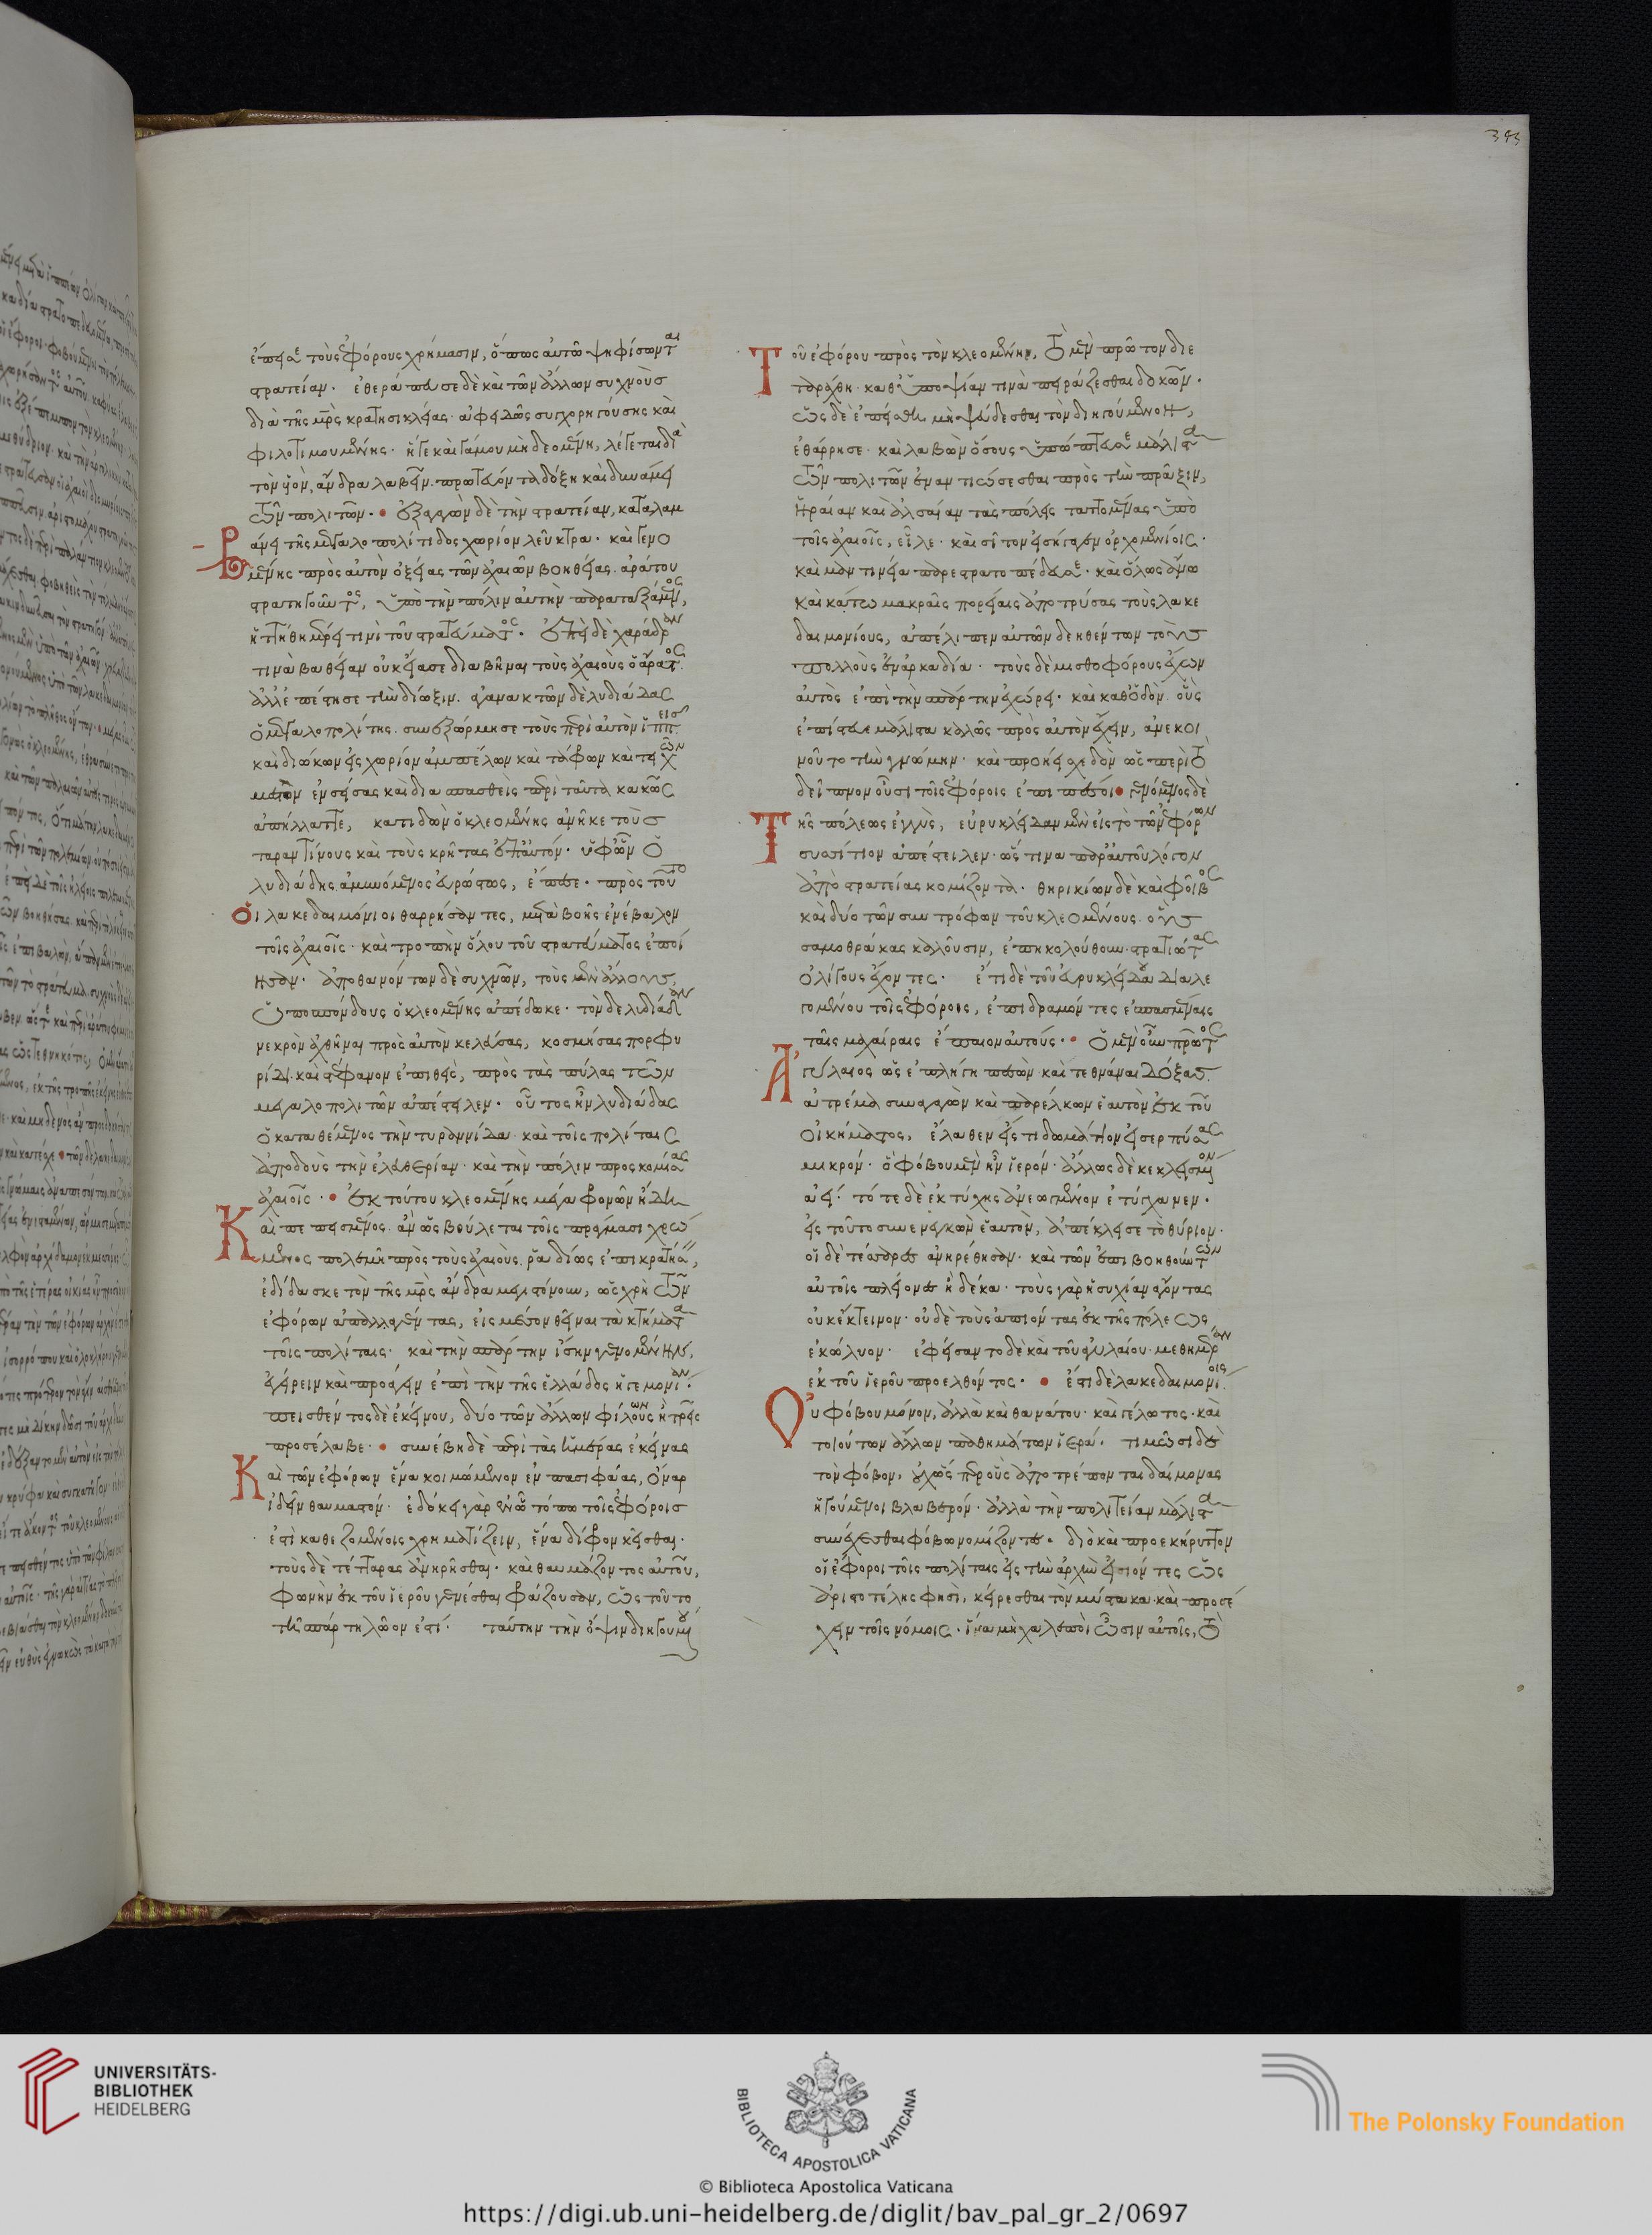 393
ἔπεισε τοὺς ἐφόρους χρήμασιν, ὅπως αὐτῶ ψηφίσωνται
στρατείαν. ἐθεράπευσε δὲ καὶ τῶν ἄλλων συχνοὺς
διὰ τῆς μητρὸς κρατησικλείας· ἀφειδῶς συγχορηγούσης καὶ
φιλοτιμουμένης· ἥ γε καὶ γάμου μὴ δεομένη, λέγεται διὰ
τὸν υἱὸν, ἄνδρα λαβεῖν· πρωτεύοντα δόξη καὶ δυνάμει
τῶν πολιτῶν. ἐξαγαγὼν δὲ τὴν στρατείαν, καταλαμ
βάνει τῆς μεγαλοπολίτιδος χωρίον λεῦκτρα· καὶ γενο
μένης πρὸς αὐτὸν ὀξείας τῶν ἀχαιῶν βοηθείας· ἀράτου
στρατηγοῦντος, ὑπὸ τὴν πόλιν αὐτὴν παραταξάμενος,
ἡττήθη μέρει τινὶ τοῦ στρατεύματος. ἐπεὶ δὲ χαράδραν
τινὰ βαθεῖαν οὐκ εἴασε διαβῆναι τοὺς ἀχαιοὺς ὁ ἄρατος.
ἀλλ' ἐπέστησε τὴν δίωξιν. ἀγανακτῶν δὲ λυδιάδας
ὁ μεγαλοπολίτης· συνεξώρμησε τοὺς περὶ αὐτὸν ἱππεις
καὶ διώκων εἰς χωρίον ἀμπέλων καὶ τάφρων καὶ τειχῶν
μεστὸν ἐνσείσας καὶ διασπασθεὶς περὶ ταῦτα κακῶς
ἀπήλλαττε, κατιδὼν ὁ κλεομένης ἀνῆκε τοὺς
ταραντίνους καὶ τοὺς κρῆτας ἐπ' αὐτόν· ὑφ' ὧν ὁ
λυδιάδης ἀμυνόμενος εὐρώστως, ἔπεσε· πρὸς τοῦτο
οἱ λακεδαιμόνιοι θαρρήσαντες, μετὰ βοῆς ἐνέβαλον
τοῖς ἀχαιοῖς· καὶ τροπὴν ὅλου τοῦ στρατεύματος ἐποί
ησαν. ἀποθανόντων δὲ συχνῶν, τοὺς μὲν ἄλλους,
ὑποσπόνδους ὁ κλεομένης ἀπέδωκε· τὸν δε λυδιάδαν
νεκρὸν ἀχθῆναι πρὸς αὐτὸν κελεύσας, κοσμήσας πορφυ
ρίδι καὶ στέφανον ἐπιθεὶς, πρὸς τὰς πύλας τῶν
μεγαλοπολιτῶν ἀπέστειλεν. οὗτος ἦν λυδιάδας
ὁ καταθέμενος τὴν τυραννίδα καὶ τοῖς πολίταις
ἀποδοὺς τὴν ἐλευθερίαν· καὶ τὴν πόλιν προσκομίσας
ἀχαιοῖς· ἐκ τούτου κλεομένης μέγα φρονῶν ἤδη
καὶ πεπεισμένος ἂν ὡς βούλεται τοῖς πράγμασι χρώ
μενος πολεμῆ πρὸς τοὺς ἀχαιοὺς, ῥαδίως ἐπικρατήσειν,
ἐδίδασκε τὸν τῆς μητρὸς ἄνδρα μεγιστόνουν, ὡς χρὴ τῶν
ἐφόρων ἀπαλλαγέντας, εἰς μέσον θεῖναι τὰ κτήματα
τοῖς πολίταις· καὶ τὴν σπάρτην ἴσην γενομένην,
ἐγείρειν καὶ προάγειν ἐπὶ τὴν τῆς ἑλλάδος ἡγεμονίαν·
πεισθέντος δὲ ἐκείνου, δύο τῶν ἄλλων φίλων ἢ τρεῖς
προσέλαβε· συνέβη δὲ περὶ τὰς ἡμέρας ἐκείνας
καὶ τῶν ἐφόρων ἕνα κοιμώμενον ἐν πασιφάας, ὄναρ
ἰδεῖν θαυμαστόν· ἐδόκει γὰρ ἐν ὧ τόπω τοῖς ἐφόροις
ἐστὶ καθεζομένοις χρηματίζειν, ἕνα δίφρον κεῖσθαι·
τοὺς δὲ τέτταρας ἀνηρῆσθαι· καὶ θαυμάζοντος αὐτοῦ,
φωνὴν ἐκ τοῦ ἱεροῦ γενέσθαι φράζουσαν, ὡς τοῦτο
τῆ σπάρτη λῶον ἐστί· ταύτην τὴν ὄψιν διηγουμένου
τοῦ ἐφόρου πρὸς τὸν κλεομένην, τὸ μὲν πρῶτον διε
ταράχθη· καθ' ὑποψίαν τινὰ πειράζεσθαι δοκῶν·
ὡς δὲ ἐπείσθη μὴ ψεύδεσθαι τὸν διηγούμενον,
ἐθάρρησε· καὶ λαβὼν ὅσους ὑπώπτευσε μάλιστα
τῶν πολιτῶν ἐναντιώσεσθαι πρὸς τὴν πρᾶξιν,
ἡραίαν καὶ ἀλσαίαν τὰς πόλεις ταττομένας ὑπὸ
τοῖς ἀχαιοῖς, εἷλε· καὶ σῖτον εἰσήγαγεν ὀρχομενίοις·
καὶ μαντινεία παρεστρατοπέδευσε· καὶ ὅλως ἄνω
καὶ κάτω μακραῖς πορείαις ἀποτρύσας τοὺς λακε
δαιμονίους, ἀπέλιπεν αὐτῶν δεηθέντων τοὺς
πολλοὺς ἐν ἀρκαδία· τοὺς δὲ μισθοφόρους ἔχων
αὐτὸς ἐπὶ τὴν σπάρτην ἐχώρει· καὶ καθ' ὁδὸν οὓς
ἐπίστευε μάλιστα καλῶς πρὸς αὐτὸν ἔχειν, ἀνεκοι
νοῦτο τὴν γνώμην· καὶ προήει σχεδὸν ὡς περὶ τὸ
δεῖπνον οὖσι τοῖς ἐφόροις ἐπιπέσοι· γενόμενος δὲ
τῆς πόλεως ἐγγὺς, εὐρυκλείδαν μὲν εἰς τὸ τῶν ἐφόρων
συσσίτιον ἀπέστειλεν· ὥς τινα παρ' αὐτοῦ λόγον
ἀπὸ στρατείας κομίζοντα· θηρικίων δὲ καὶ φοῖβος
καὶ δύο τῶν συντρόφων τοῦ κλεομένους· οὓς
σαμοθράκας καλοῦσιν, ἐπηκολούθουν· στρατιώτας
ὀλίγους ἔχοντες· ἔτι δὲ τοῦ εὐρυκλείδου διαλε
γομένου τοῖς ἐφόροις, ἐπιδραμόντες ἐσπασμέναις
ταῖς μαχαίραις ἔπαιον αὐτούς· ὁ μὲν οὖν πρῶτος
ἀγύλαιος ὡς ἐπλήγη πεσὼν καὶ τεθνάναι δόξας
ἀτρέμα συναγαγὼν καὶ παρέλκων ἑαυτὸν ἐκ τοῦ
οἰκήματος, ἔλαθεν εἴς τι δωμάτιον εἰσερπύσας
μικρόν· ὃ φόβου μὲν ἦν ἱερόν· ἄλλως δὲ κεκλεισμένον
ἀεί· τότε δὲ ἐκ τύχης ἀνεωγμένον ἐτύγχανεν·
εἰς τοῦτο συνενεγκὼν ἑαυτὸν, ἀπέκλεισε τὸ θύριον·
οἱ δὲ τέσσαρες ἀνηρέθησαν· καὶ τῶν ἐπιβοηθούντων
αὐτοῖς πλείονες ἢ δέκα· τοὺς γὰρ ἡσυχίαν ἄγοντας
οὐκ ἔκτεινον· οὐδὲ τοὺς ἀπιόντας ἐκ τῆς πόλεως
ἐκώλυον· ἐφείσαντο δὲ καὶ τοῦ ἀγυλαίου μεθ' ἡμέραν
ἐκ τοῦ ἱεροῦ προελθόντος· ἔστι δὲ λακεδαιμονίοις
οὐ φόβου μόνον, ἀλλὰ καὶ θανάτου· καὶ γέλωτος· καὶ
τοιούτων ἄλλων παθημάτων ἱερά· τιμῶσι δὲ
τὸν φόβον, οὐχ ὥσπερ οὓς ἀποτρέπονται δαίμονας
ἡγούμενοι βλαβερόν· ἀλλὰ τὴν πολιτείαν μάλιστα
συνέχεσθαι φόβω νομίζοντες· διὸ καὶ προεκήρυττον
οἱ ἔφοροι τοῖς πολίταις εἰς τὴν ἀρχὴν εἰσιόντες ὡς
ἀριστοτέλης φησὶ, κείρεσθαι τὸν μύστακα καὶ προσέ
χειν τοῖς νόμοις· ἵνα μὴ χαλεποὶ ὦσιν αὐτοῖς, τὸ
UNIVERSITÄTS-
BIBLIOTHEK
HEIDELBERG
BIBLIOTECA APOSTOLICA VATICANA
The Polonsky Foundation
© Biblioteca Apostolica Vaticana
https://digi.ub.uni-heidelberg.de/diglit/bav_pal_gr_2/0697